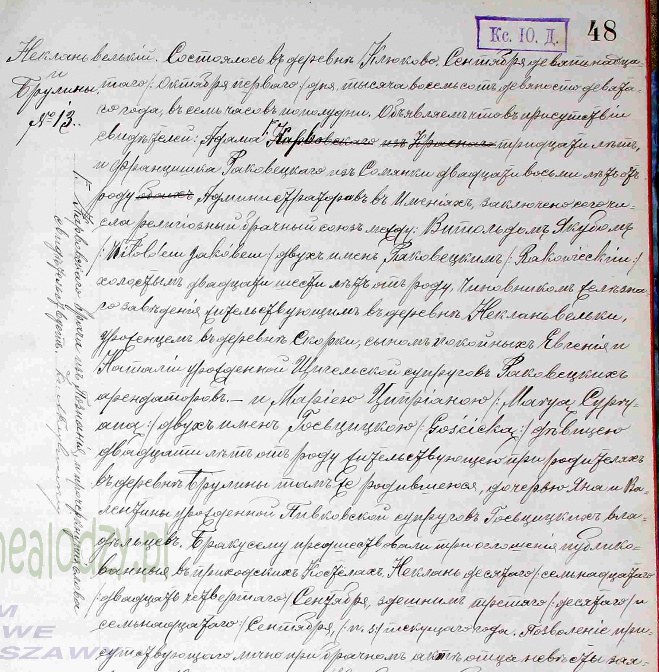 Кс. Ю. Д.
48
Неклань велький
и
Брулины
№ 13.
Состоялось въ деревнѣ Клюково, Сентября девятнадца-
таго /: Октября перваго :/ дня, тысяча восемьсотъ девяносто девята-
го года, въ семь часовъ пополудни. Объявляемъ что въ присутствіи
свидѣтелей: Адама тридцати лѣтъ,
и Францишка Раковецкаго изъ двадцати восьми лѣтъ отъ
роду Администраторовъ въ Имѣніяхъ, заключено сего чи-
сла религіозный брачный союзъ между: Витольдомъ Якубомъ
/: Witoldem Jakóbem :/ двухъ именъ Раковецкимъ /: Rakowieckim :/
холостымъ двадцати шести лѣтъ отъ роду, Чиновникомъ
жительствующимъ въ деревнѣ Неклань вельки,
урожденцемъ въ деревнѣ Скорки, сыномъ покойныхъ Евгенія и
Наталіи урожденной супруговъ Раковецкихъ
арендаторовъ. — и Маріею Ципріаною /: Marya Cypry-
ana :/ двухъ именъ Госьцицкою /: Gościcka :/ дѣвицею
двадцати лѣтъ отъ роду жительствующею при родителяхъ
въ деревнѣ Брулины тамъ же родившеюся, дочерью Яна и Ва-
лентины урожденной Пивковской супруговъ Госьцицкихъ вла-
дѣльцевъ. Браку сему предшествовали три оглашенія публико-
ванныя въ приходскихъ Костелахъ, Неклань десятаго /: семьнадцатаго
/: двадцать четвертаго :/ Сентября, здѣшнемъ третьяго /: десятаго :/ и
семьнадцатаго :/ Сентября, /: н. s :/ текущаго года. Позволеніе при-
сутствующаго лично при брачномъ актѣ отца невѣсты
ealodzy.pl
M
WE
SZAW